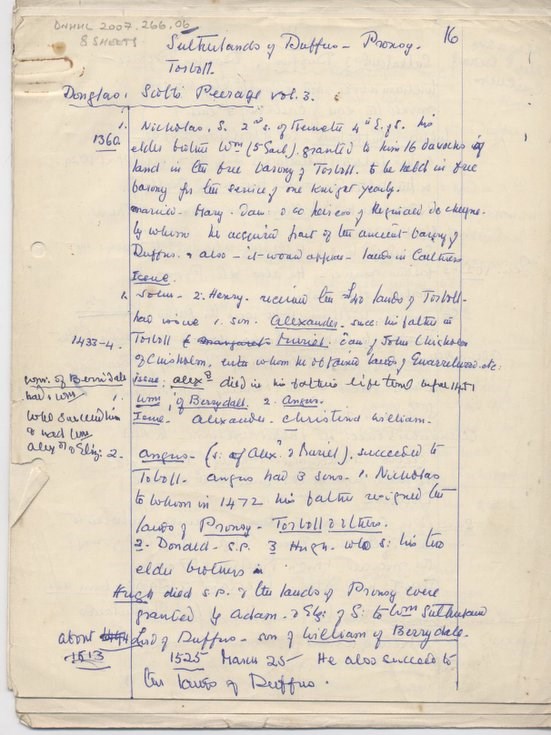 DNHHL 2007.266.06
8 SHEETS
16
Sutherlands of Duffus - Pronsy.
Torboll.
Douglas: Scots Peerage vol. 3.
1360
1. Nicholas. S. 2nd s. of Kenneth 4th E. of S. his
elder brother Wm (5 Earl) granted to him 16 davochs of
land in the free barony of Torboll. to be held in free
barony for the service of one knight yearly.
married - Mary. Dau. & co heiress of Reginald de Cheyne.
by whom he acquired part of the ancient barony of
Duffus. & also - it would appear - lands in Caithness
Issue.
1. John - 2. Henry. received the £40 lands of Torboll.
had issue 1. son. Alexander - succ: his father in
1433-4.
Torboll & margaret Muriel. dau. of John Chisholm
of Chisholm, with whom he obtained lands of Quarrelwood etc:
issue: Alexr died in his father's lifetime before 1451
Wm, of Berrydale. 2. Angus.
Issue - Alexander - Christina William.
Wm. of Berridale
had 1. Wm
who succeeded him
& had Wm
Alexr & Eliz: 2.
Angus - (s: of Alexr & Muriel), succeeded to
Torboll. Angus had 3 sons - 1. Nicholas
to whom in 1472 his father resigned the
lands of Pronsy - Torboll & others.
2 - Donald - s.p. 3 Hugh. who s: his two
elder brothers
Hugh died s.p. & the lands of Pronsy were
granted by Adam - & Eliz: of S: to Wm Sutherland
about
1513
Lord of Duffus - son of William of Berrydale.
1525 March 25 - He also succeeded to
the lands of Duffus.